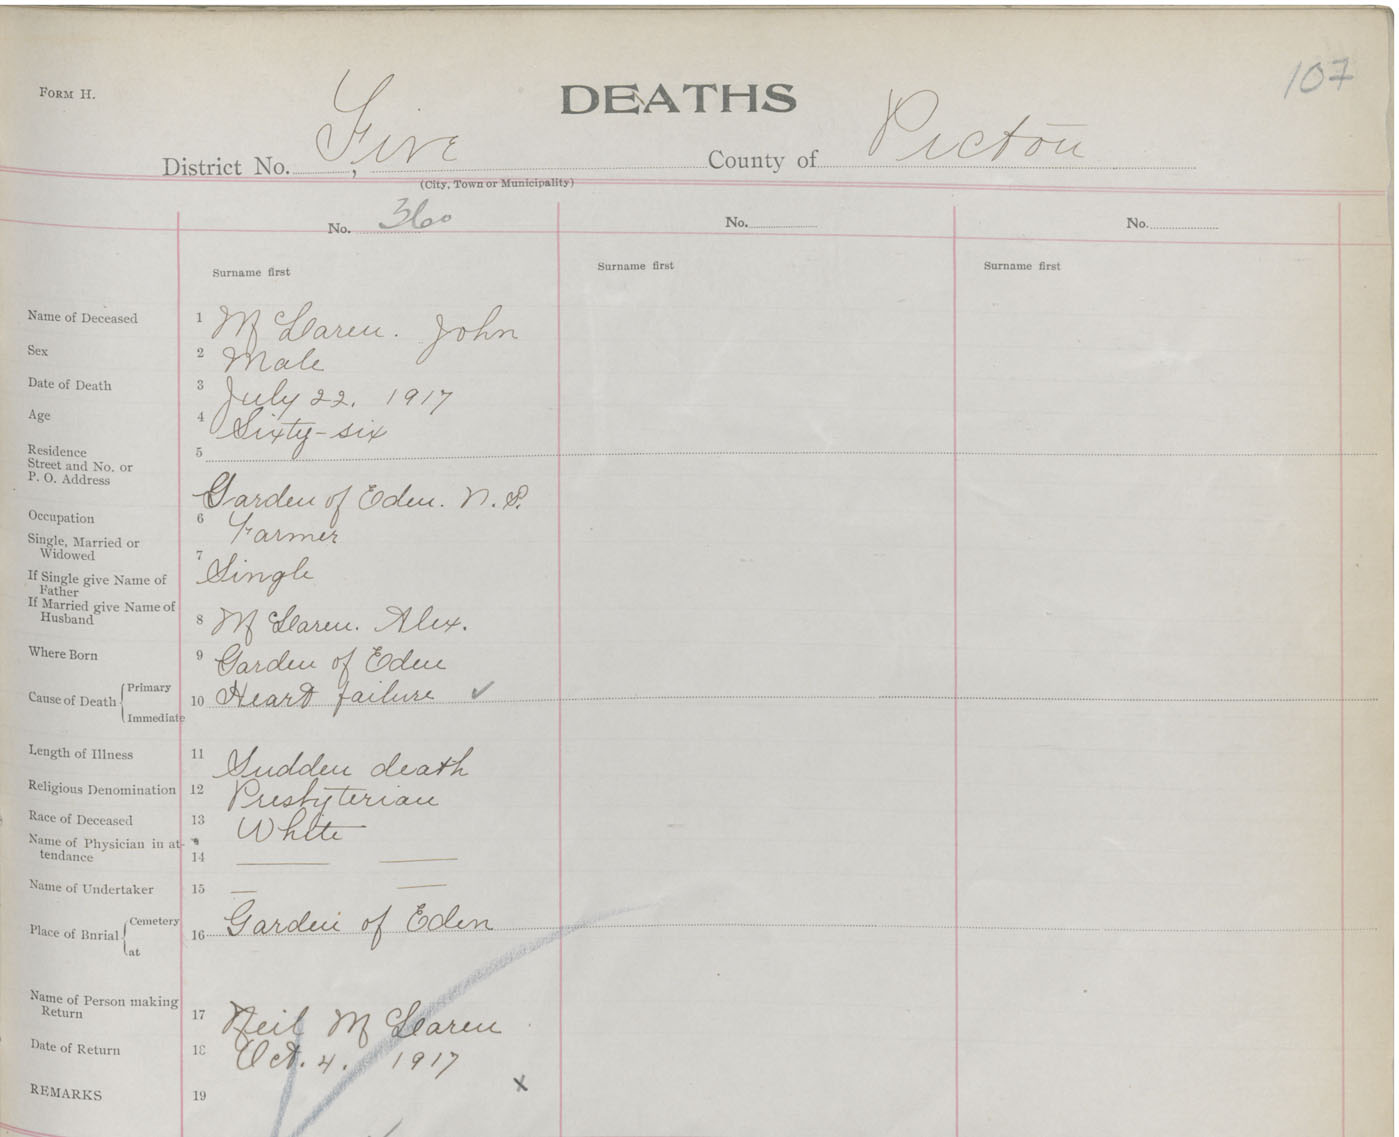 107
FORM H.
DEATHS
District No. Five, County of Pictou
(City, Town or Municipality)
No. 360 No. No.
Surname first Surname first Surname first
Name of Deceased 1 Mc Laren. John
Sex 2 Male
Date of Death 3 July 22, 1917
Age 4 Sixty-six
Residence 5
Street and No. or
P. O. Address
Garden of Eden. N.S.
Occupation 6 Farmer
Single, Married or
Widowed 7 Single
If Single give Name of
Father
If Married give Name of
Husband 8 Mc Laren. Alex.
Where Born 9 Garden of Eden
Cause of Death Primary 10 Heart failure ✓
Immediate
Length of Illness 11 Sudden death
Religious Denomination 12 Presbyterian
Race of Deceased 13 White
Name of Physician in at-
tendance 14
Name of Undertaker 15
Place of Burial Cemetery 16 Garden of Eden
at
Name of Person making
Return 17 Neil Mc Laren
Date of Return 18 Oct. 4. 1917
x
REMARKS 19